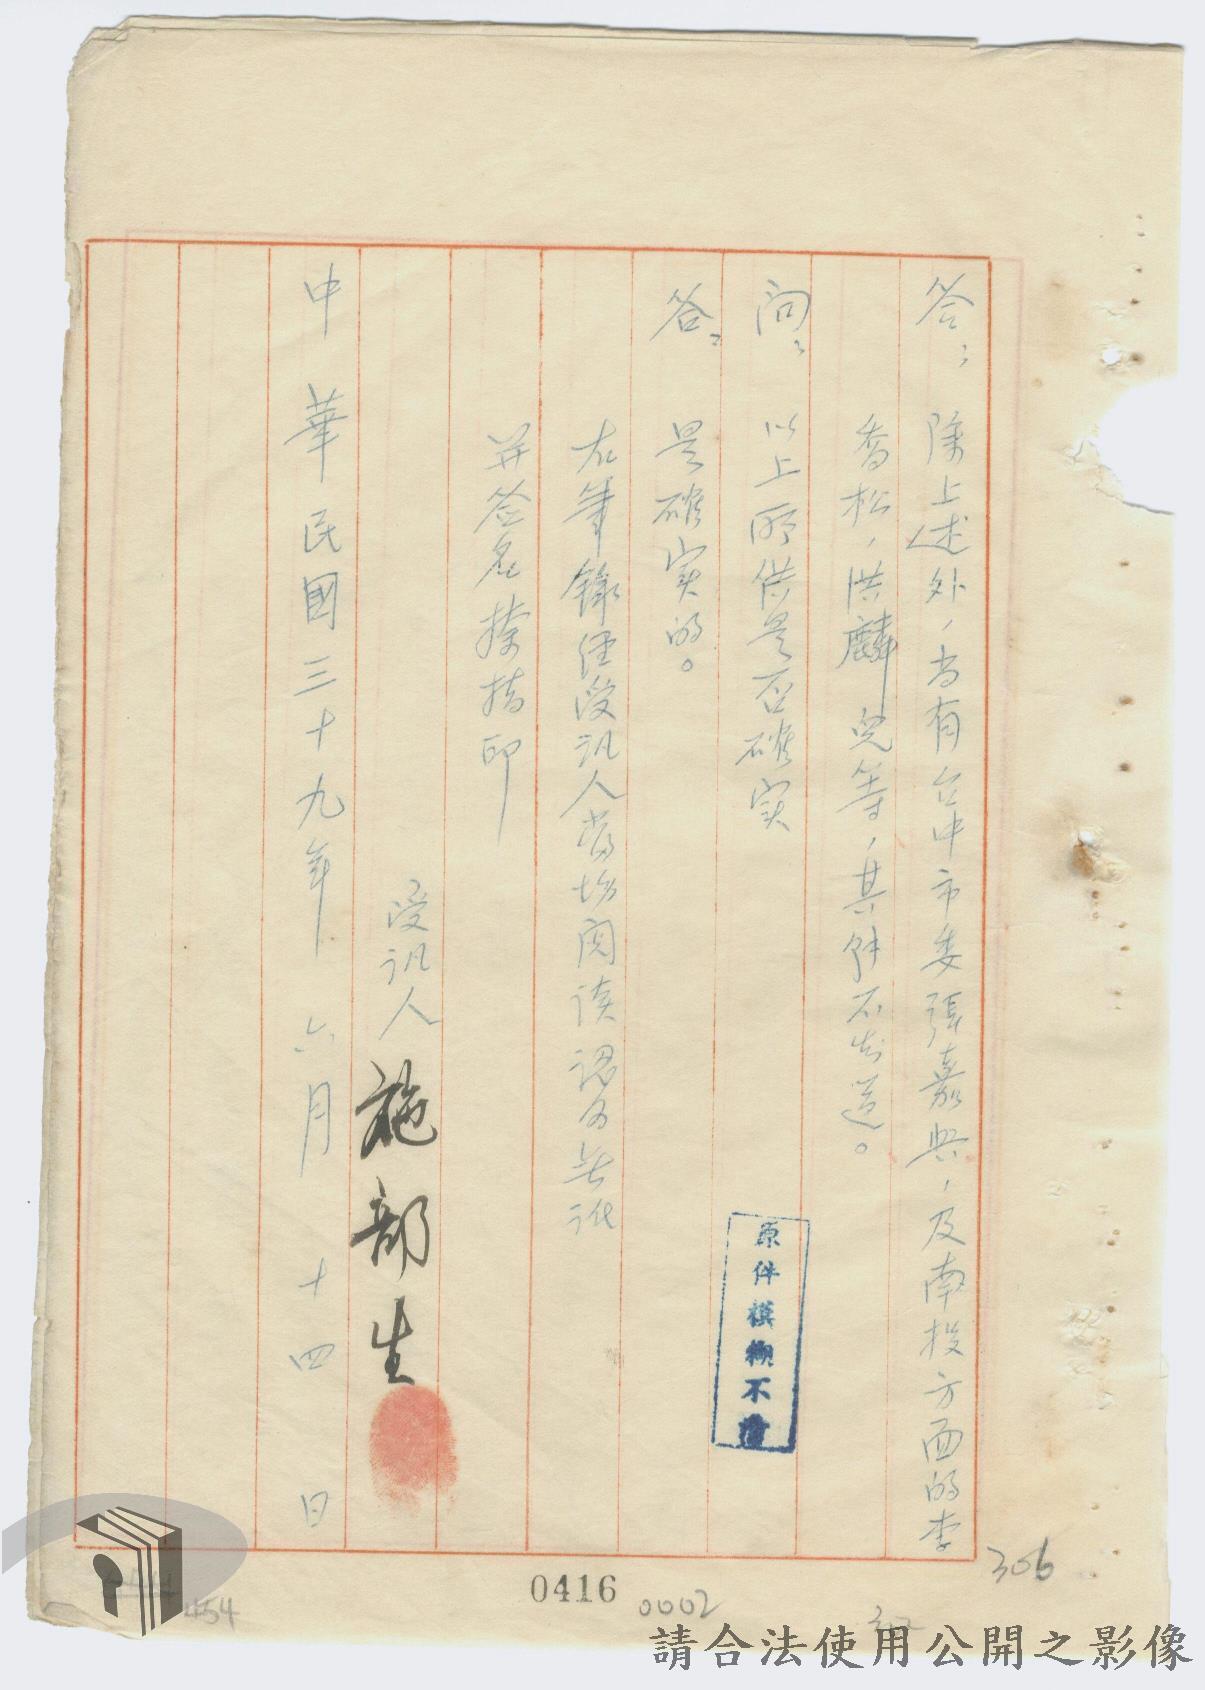 答：除上述外，尚有台中市委張嘉興，及南投方面的李
香松，洪麟兒等，其餘不知道。
問：以上所供是否確實
答：是確實的。
右筆錄經受訊人當場閱讀認為無訛
並簽名捺指印
受訊人 施部生
中華民國三十九年 六月 十四 日
原件模糊不清
306
0416
0002
454
請合法使用公開之影像